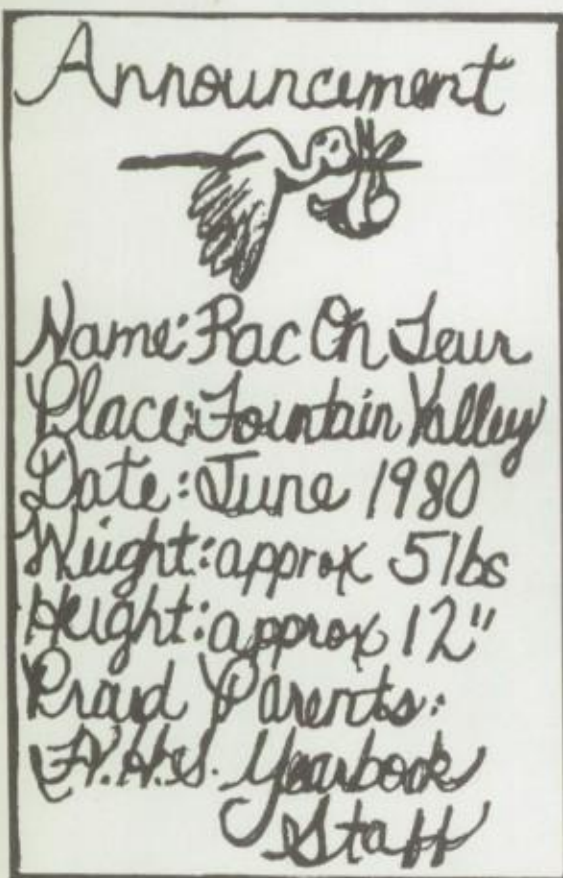 Announcement
Name: Rac On Teur
Place: Fountain Valley
Date: June 1980
Weight: approx 5 lbs
Height: approx 12"
Proud Parents:
F.V.H.S. Yearbook
Staff